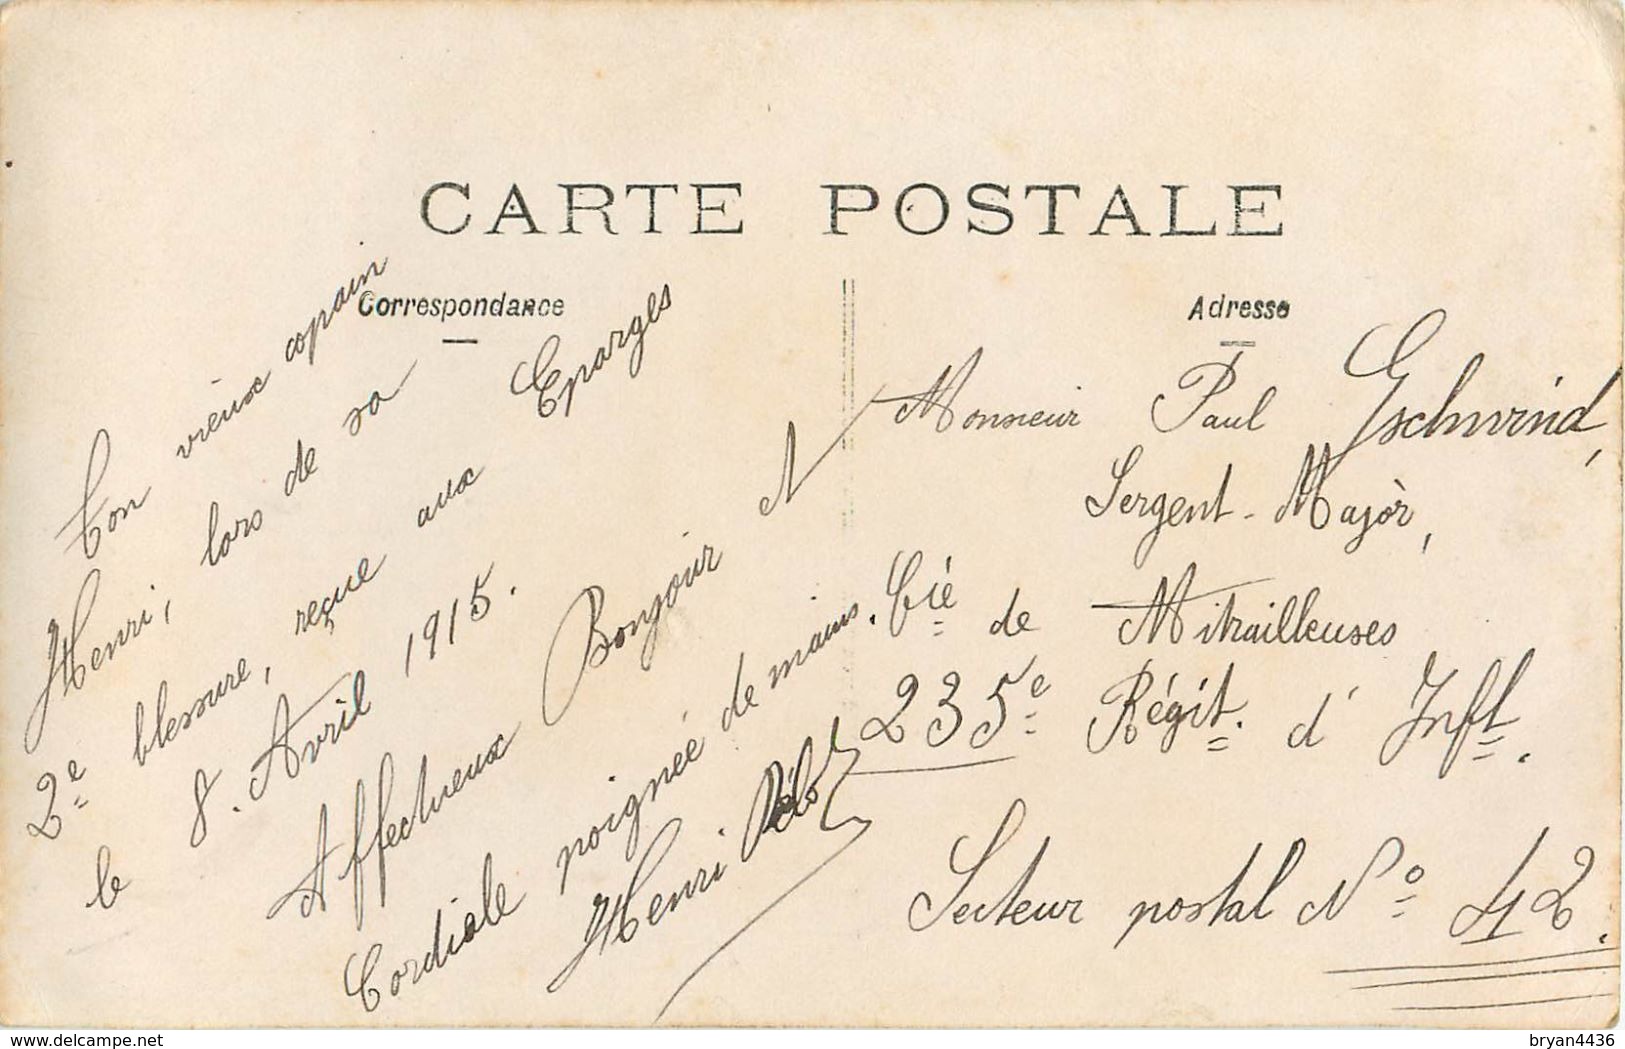 CARTE POSTALE
Correspondance
Adresse
Ton vieux copain
Henri, lors de sa
2e blessure, reçue aux Eparges
le 8. Avril 1915.
Affectueux Bonjour et
Cordiale poignée de mains.
Henri
Monsieur Paul Gschwind,
Sergent-Major,
Cie de Mitrailleuses
235e Régit. d'Inft.
Secteur postal No 42.
delcampe.net
bryan4436